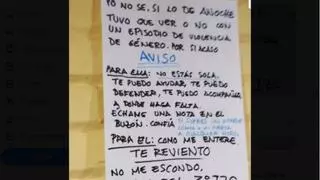 YO NO SE, SI LO DE ANOCHE
TUVO QUE VER O NO CON
UN EPISODIO DE VIOLENCIA
DE GÉNERO. POR SI ACASO
AVISO
PARA ELLA: NO ESTÁS SOLA.
TE PUEDO AYUDAR, TE PUEDO
DEFENDER, TE PUEDO ACOMPAÑAR
A DONDE HAGA FALTA.
ECHAME UNA NOTA EN EL
BUZÓN. CONFÍA
PARA EL: COMO ME ENTERE
TE REVIENTO
NO ME ESCONDO,